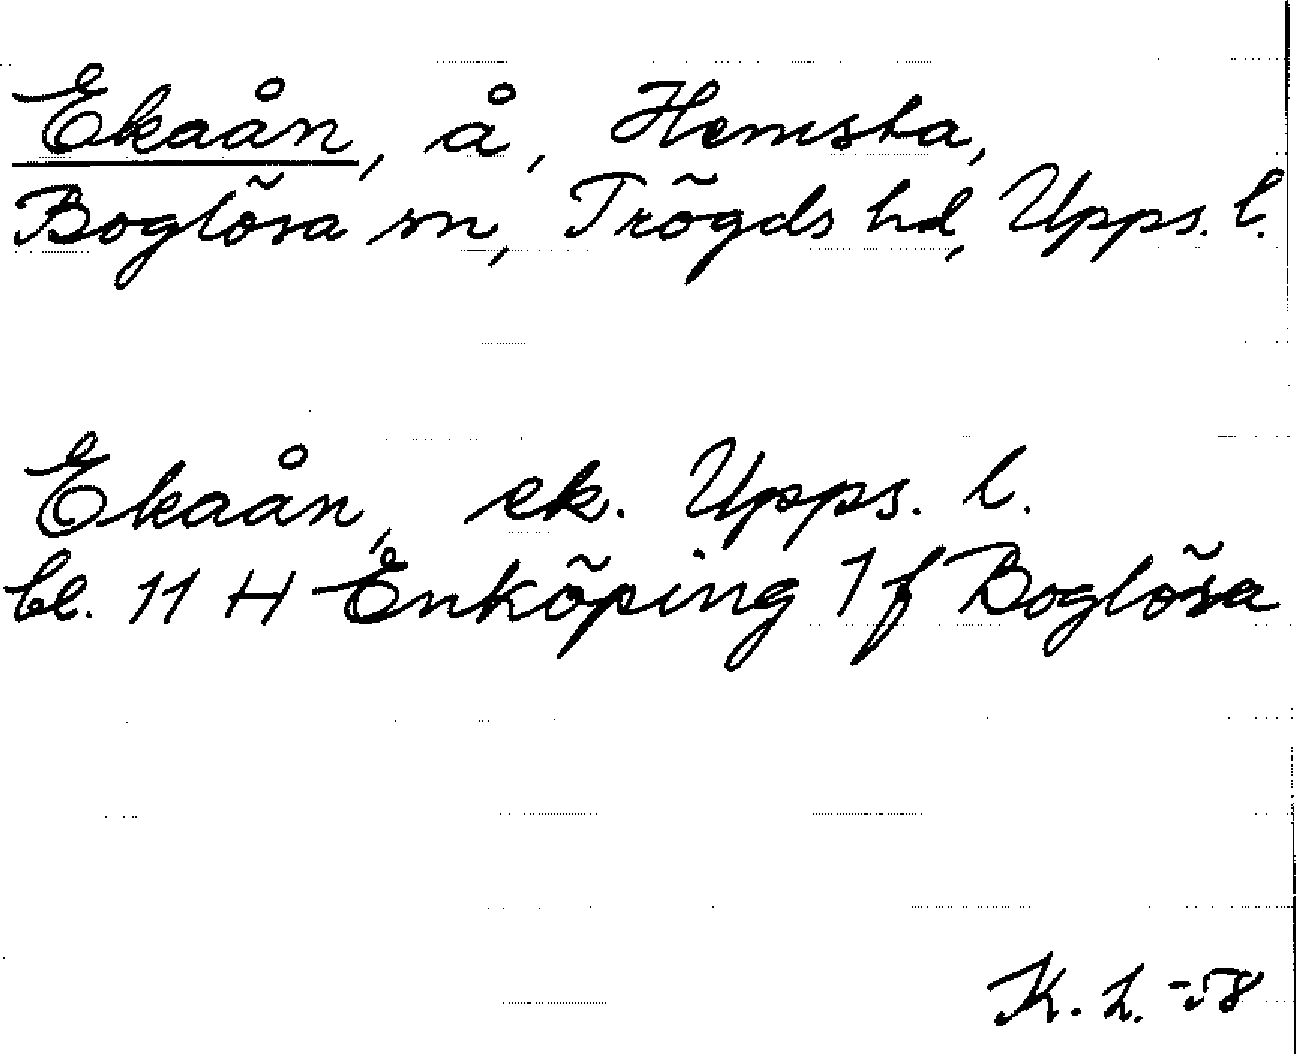 Ekaån, å, Hemsta,
Boglösa sn, Trögds hd, Upps. l.
Ekaån, ek. Upps. l.
bl. 11 H Enköping 1 f Boglösa
K. L. -58